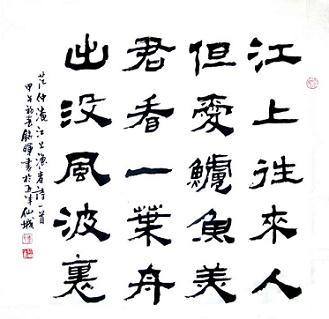 江上往來人
但愛鱸魚美
君看一葉舟
出没風波裏
范仲淹江上漁者詩一首
甲午書於五羊仙城